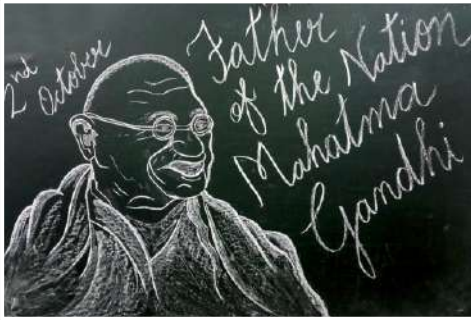 2nd
October
Father
of the Nation
Mahatma
Gandhi